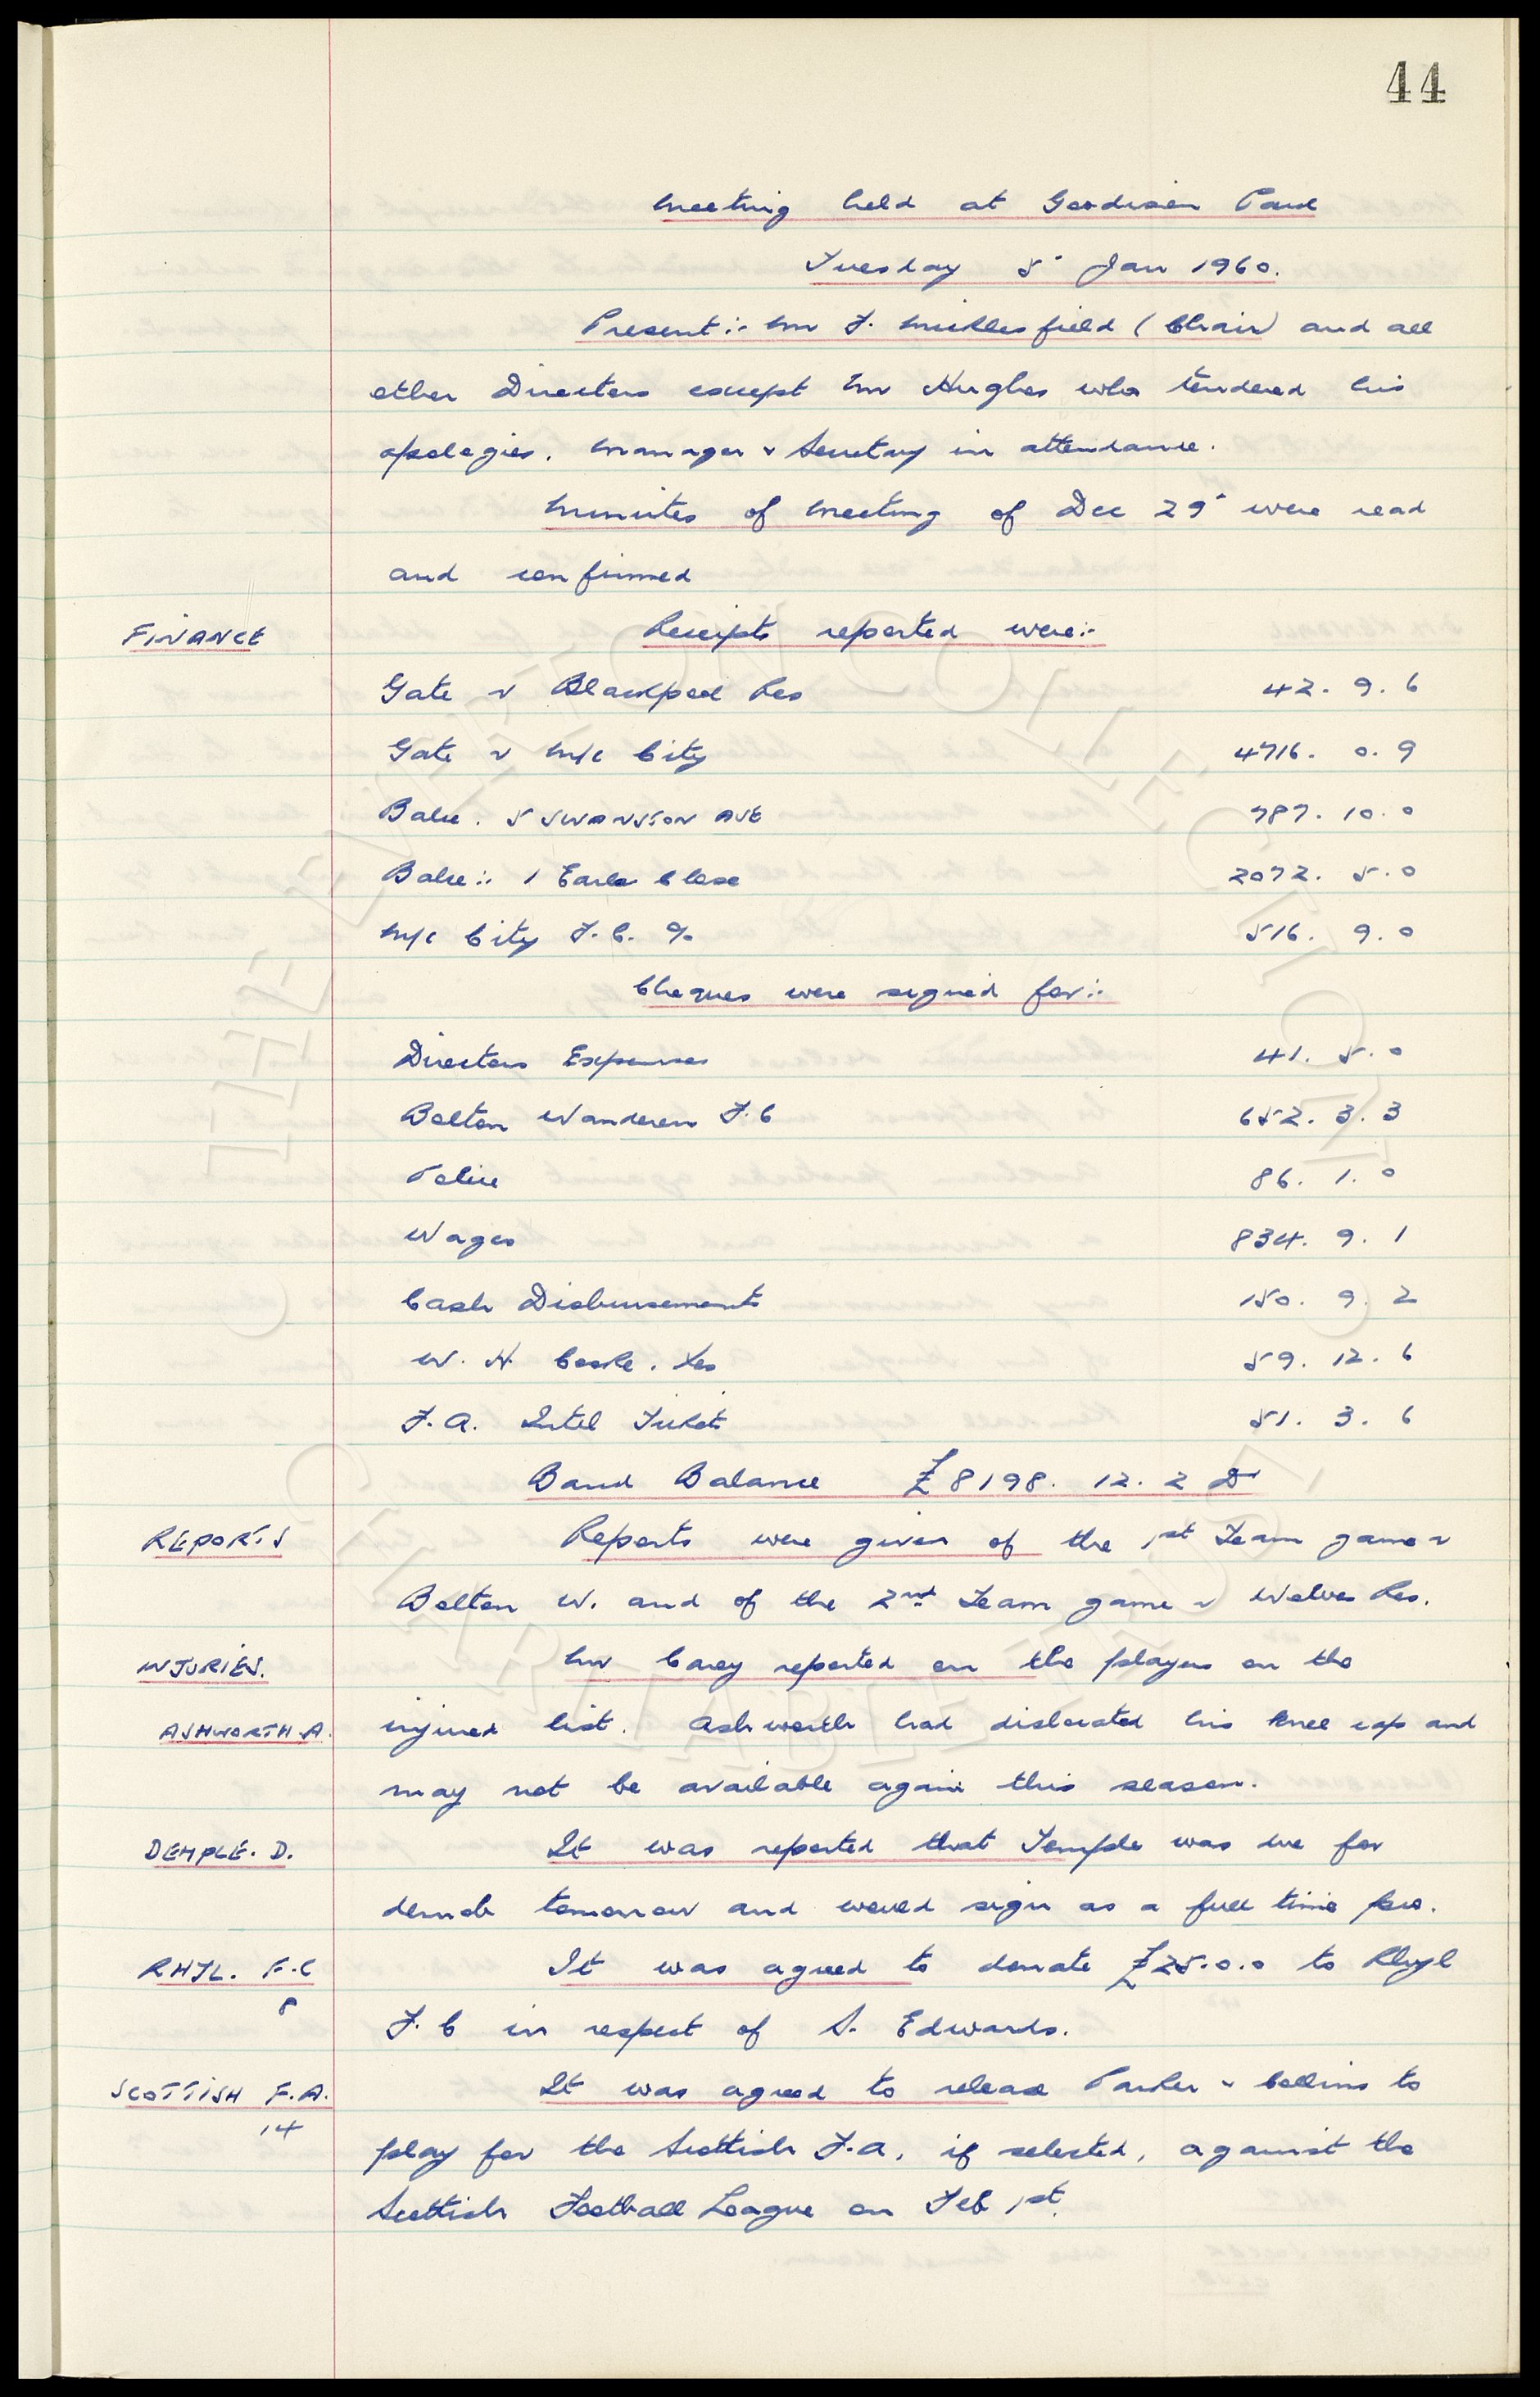 44
Meeting held at Goodison Park
Tuesday 5' Jan 1960.
Present :- Mr F. Micklesfield (Chair) and all
other Directors except Mr Hughes who tendered his
apologies. Manager & Secretary in attendance.
Minutes of Meeting of Dec 29' were read
and confirmed
FINANCE Receipts reported were:-
Gate v Blackpool Res 42. 9. 6
Gate v M/c City 4716. 0. 9
Balce. 5 SWANSTON AVE 787. 10. 0
Balce:. 1 Earls Close 2072. 5. 0
M/c City F.C. % 516. 9. 0
Cheques were signed for:-
Directors Expenses 41. 5. 0
Bolton Wanderers F.C 652. 3. 3
Police 86. 1. 0
Wages 834. 9. 1
Cash Disbursements 150. 9. 2
W. H. Cooke. 59. 12. 6
F.A. Intel Ticket 51. 3. 6
Bank Balance £8198. 12. 2 Dr
REPORTS Reports were given of the 1st Team game v
Bolton W. and of the 2nd Team game v Wolves Res.
INJURIES. Mr Carey reported on the players on the
ASHWORTH A. injured list. Ashworth had dislocated his knee cap and
may not be available again this season.
DEMPLE. D. It was reported that Temple was due for
demob tomorrow and would sign as a full time pro.
RHYL. F.C It was agreed to donate £25.0.0 to Rhyl
8 F.C in respect of S. Edwards.
SCOTTISH F.A. It was agreed to release Parker & Collins to
14 play for the Scottish F.A, if selected, against the
Scottish Football League on Feb 1st.